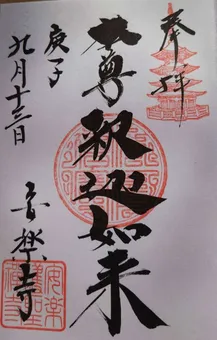 奉拝
本尊釈迦如来
庚子
九月十三日
安樂寺